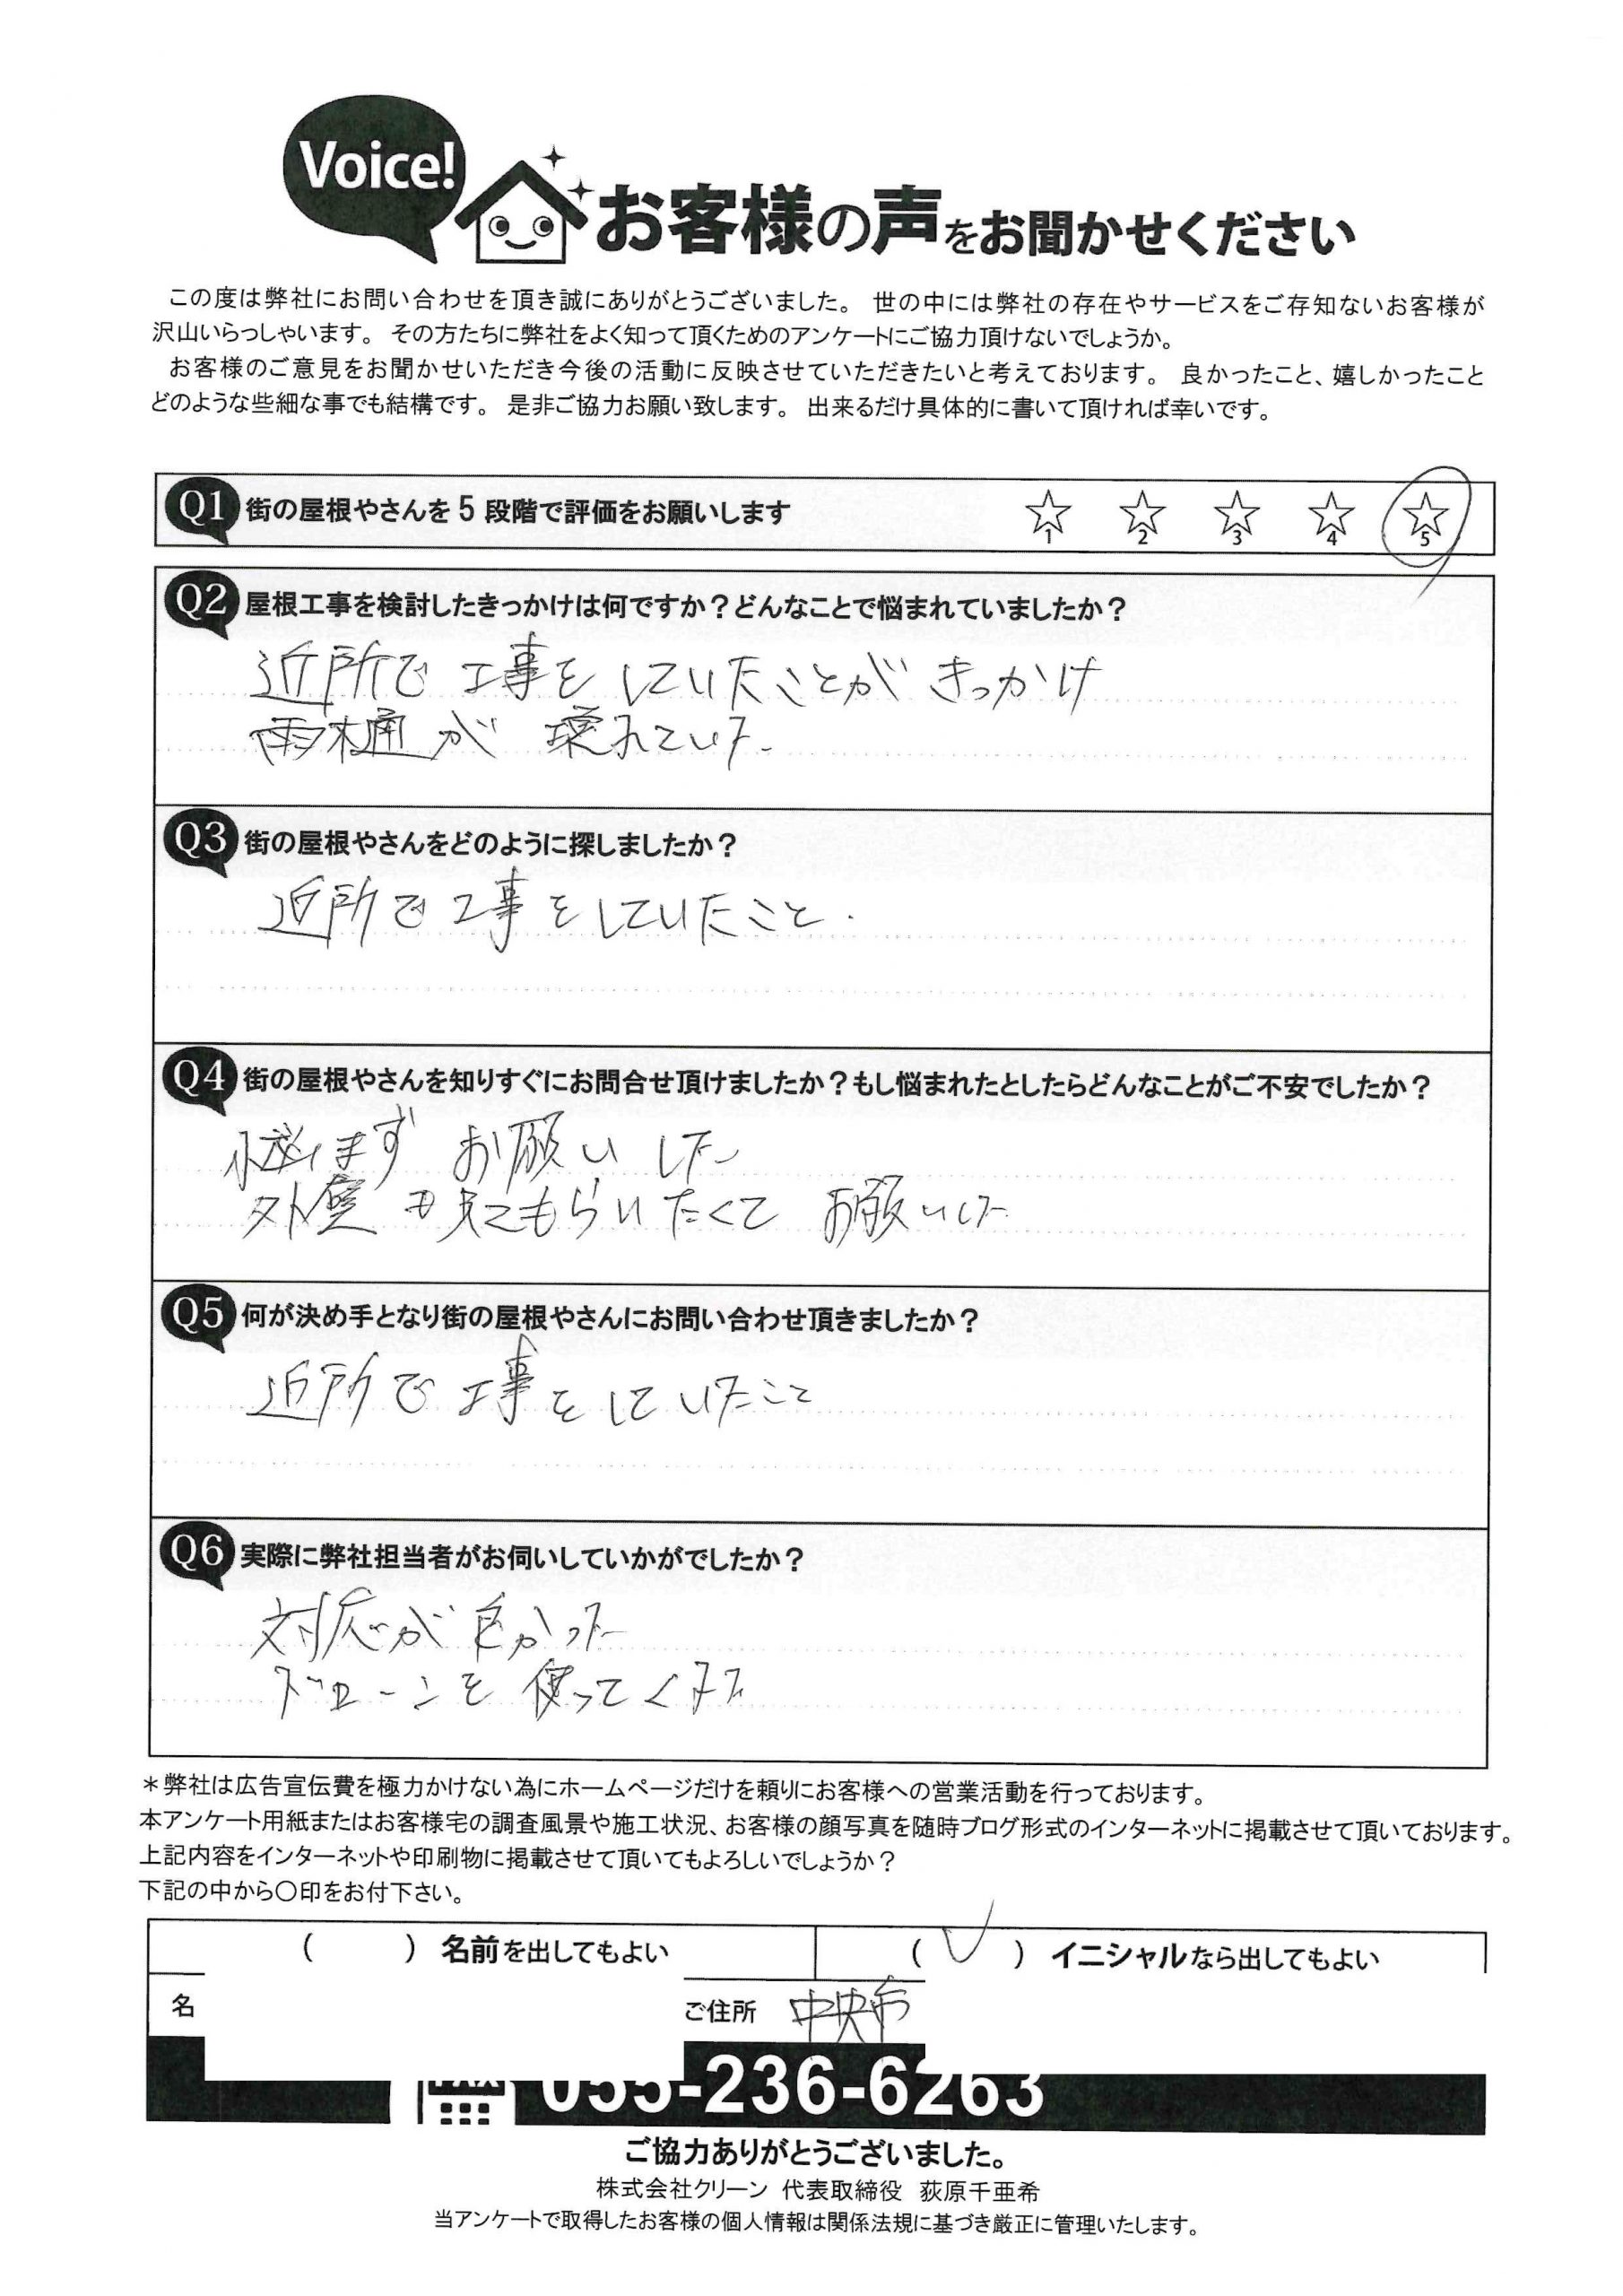 Voice!
お客様の声をお聞かせください
この度は弊社にお問い合わせを頂き誠にありがとうございました。 世の中には弊社の存在やサービスをご存知ないお客様が
沢山いらっしゃいます。 その方たちに弊社をよく知って頂くためのアンケートにご協力頂けないでしょうか。
お客様のご意見をお聞かせいただき今後の活動に反映させていただきたいと考えております。 良かったこと、嬉しかったこと
どのような些細な事でも結構です。 是非ご協力お願い致します。 出来るだけ具体的に書いて頂ければ幸いです。
Q1 街の屋根やさんを 5 段階で評価をお願いします ☆1 ☆2 ☆3 ☆4 ☆5
Q2 屋根工事を検討したきっかけは何ですか？どんなことで悩まれていましたか？
近所で 工事を していたことが きっかけ
雨樋が 壊れていた
Q3 街の屋根やさんをどのように探しましたか？
近所で工事をしていたこと.
Q4 街の屋根やさんを知りすぐにお問合せ頂けましたか？もし悩まれたとしたらどんなことがご不安でしたか？
悩まず お願い した
外壁 も 見てもらいたくて お願いした
Q5 何が決め手となり街の屋根やさんにお問い合わせ頂きましたか？
近所で 工事を していたこと
Q6 実際に弊社担当者がお伺いしていかがでしたか？
対応が良かった
ドローンを 使って
＊弊社は広告宣伝費を極力かけない為にホームページだけを頼りにお客様への営業活動を行っております。
本アンケート用紙またはお客様宅の調査風景や施工状況、お客様の顔写真を随時ブログ形式のインターネットに掲載させて頂いております。
上記内容をインターネットや印刷物に掲載させて頂いてもよろしいでしょうか？
下記の中から〇印をお付下さい。
( ) 名前を出してもよい (✓) イニシャルなら出してもよい
名 ご住所 中央市
055-236-6263
ご協力ありがとうございました。
株式会社クリーン 代表取締役 荻原千亜希
当アンケートで取得したお客様の個人情報は関係法規に基づき厳正に管理いたします。